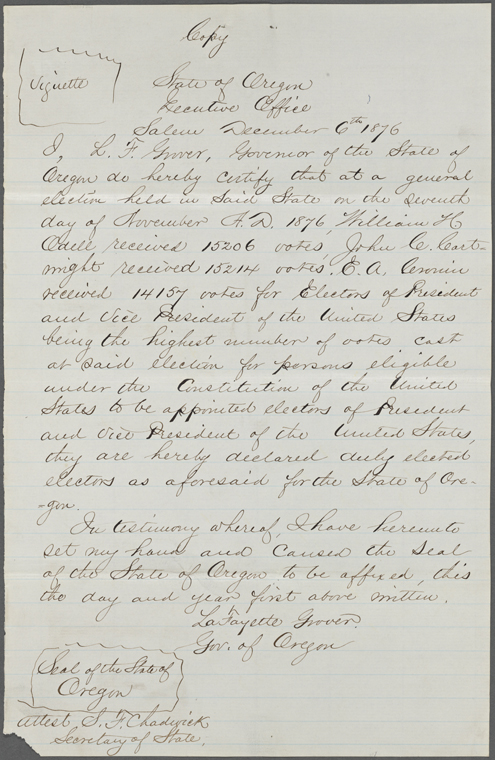 Copy
Vignette
State of Oregon
Executive Office
Salem December 6th 1876
I, L. F. Grover, Governor of the State of
Oregon do hereby certify that at a general
election held in said State on the seventh
day of November A. D. 1876, William H
Odell received 15206 votes, John C. Cart-
wright received 15214 votes, E. A. Cronin
received 14157 votes for Electors of President
and Vice President of the United States
being the highest number of votes cast
at said election for persons eligible
under the Constitution of the United
States to be appointed electors of President
and Vice President of the United States,
they are hereby declared duly elected
electors as aforesaid for the State of Ore-
-gon.
In testimony whereof, I have hereunto
set my hand and caused the seal
of the State of Oregon to be affixed, this
the day and year first above written.
LaFayette Grover.
Gov. of Oregon
Seal of the State of
Oregon
attest, S. F. Chadwick
Secretary of State.